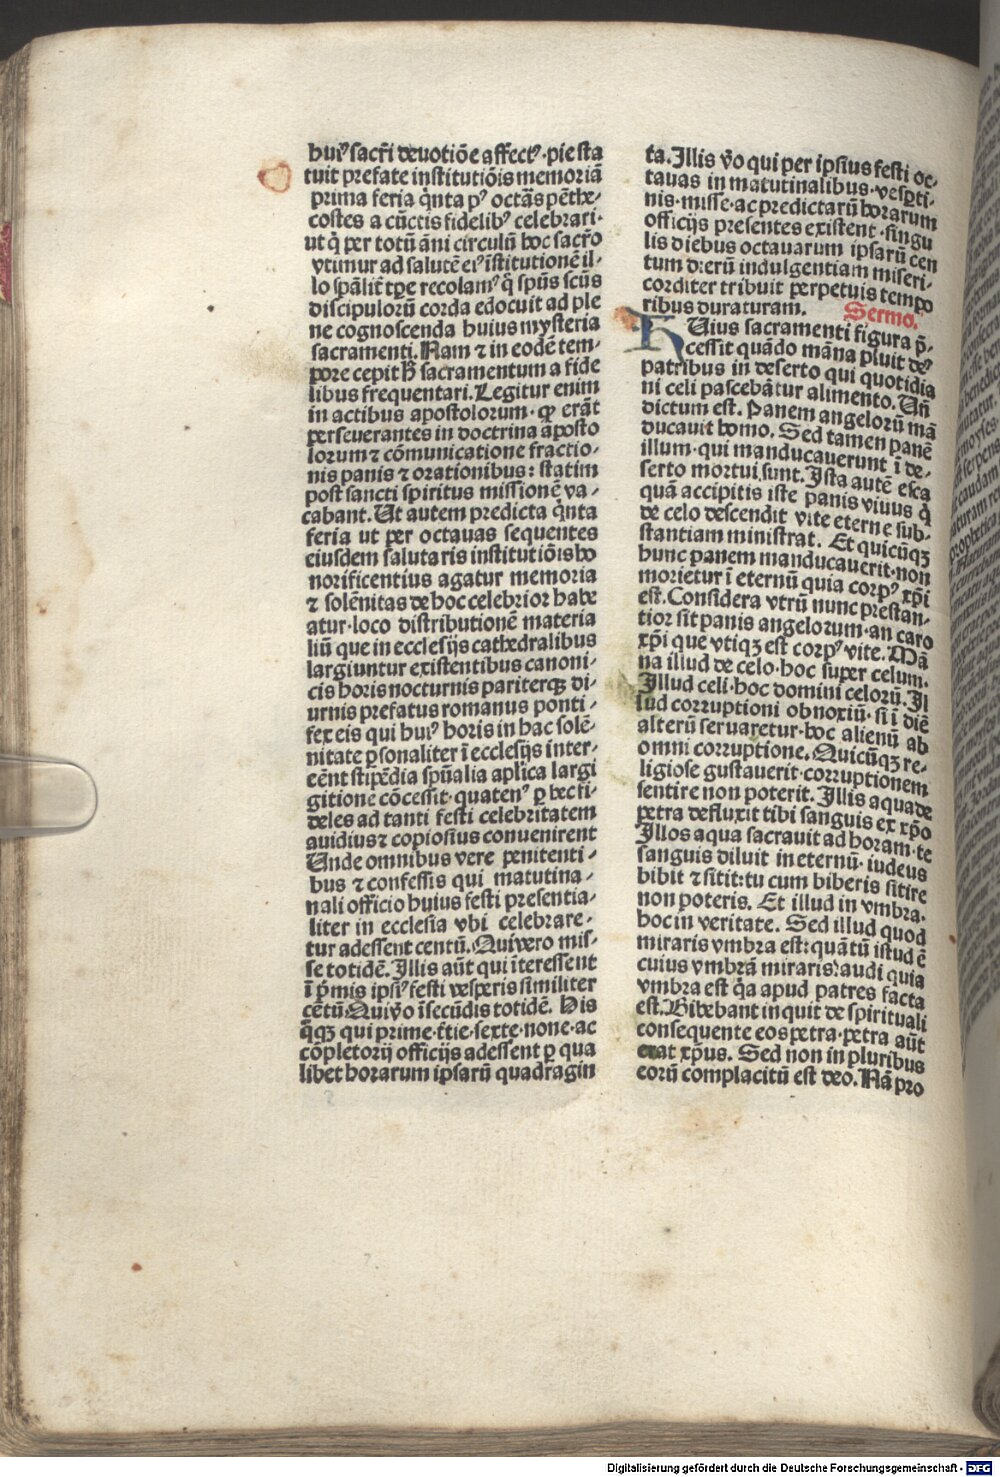 huiꝰ sacri deuotiōe affectꝰ·pie sta
tuit prefate institutiōis memoriā
prima feria q̇nta pꝰ octāś pēthe-
costes a cūctis fidelibꝰ celebrari·
ut q̇ per totū āni circulū hoc sacr̄o
vtimur ad salutē eiꝰ īstitutionē il-
lo spāliter tp̄e recolamꝰ q̇ spūs scūs
discipulorū corda edocuit ad ple
ne cognoscenda huius mysteria
sacramenti. Nam ⁊ in eodē tem-
pore cepit h̄ sacramentum a fide
libus frequentari. Legitur enim
in actibus apostolorum· ꝙ erāt
perseuerantes in doctrina aposto
lorum ⁊ cōmunicatione fractio-
nis panis ⁊ orationibus: statim
post sancti spiritus missionē va-
cabant. Ut autem predicta q̇nta
feria ut per octauas sequentes
eiusdem salutaris institutiōis ho
norificentius agatur memoria
⁊ solēnitas de hoc celebrior habe
atur·loco distributionē materia
liū que in ecclesijs cathedralibus
largiuntur existentibus canoni-
cis horis nocturnis pariterqꝫ di-
urnis prefatus romanus ponti-
fex eis qui huiꝰ horis in hac solē-
nitate ꝑsonaliter ī ecclesijs inter-
eēnt stipēdia spūalia aplica largi
gitione cōcessit·quatenꝰ ꝑ hec fi-
deles ad tanti festi celebritatem
auidius⁊ copiosius conuenirent
Unde omnibus vere penitenti-
bus ⁊ confessis qui matutina-
nali officio huius festi presentia-
liter in ecclesia vbi celebrare-
tur adessent centū. Qui vero mis-
se totidē. Illis aūt qui īteressent
ī p̄mis ipsiꝰ festi vesperis similiter
cētū Qui v̄o īsecūdis totidē. His
q̇qꝫ qui prime·t̄tie·sexte·none·ac
cōpletorij officijs adessent ꝑ qua
libet horarum ipsarū quadragin
ta. Illis v̄o qui per ipsius festi oc-
tauas in matutinalibus·vesꝑti-
nis·misse·ac predictarū horarum
officijs presentes existent·singu
lis diebus octauarum ipsarū cen
tum dierū indulgentiam miseri-
corditer tribuit perpetuis tempo
ribus duraturam. Sermo.
HUius sacramenti figura p̄-
cessit quādo māna pluit deꝰ
patribus in deserto qui quotidia
ni celi pascebātur alimento. Uñ
dictum est. Panem angelorū mā
ducauit homo. Sed tamen panē
illum·qui manducauerunt ī de-
serto mortui sunt. Ista autē esca
quā accipitis iste panis viuus q̇
de celo descendit vite eterne sub-
stantiam ministrat. Et quicūqꝫ
hunc panem manducauerit·non
morietur ī eternū quia corpꝰ xp̄i
est. Considera vtrū nunc prestan-
tior sit panis angelorum·an caro
xp̄i que vtiqꝫ est corpꝰ vite. Mā
na illud de celo·hoc super celum.
Illud celi·hoc domini celorū. Il
lud corruptioni obnoxiū·si ī diē
alterū seruaretur·hoc alienū ab
omni corruptione. Quicūqꝫ re-
ligiose gustauerit·corruptionem
sentire non poterit. Illis aqua de
petra defluxit tibi sanguis ex xp̄o
Illos aqua sacrauit ad horam·te
sanguis diluit in eternū·iudeus
bibit ⁊ sitit:tu cum biberis sitire
non poteris. Et illud in vmbra·
hoc in veritate. Sed illud quod
miraris vmbra est:quātū istud ē
cuius vmbrā miraris: audi quia
vmbra est q̄a apud patres facta
est. Bibebant inquit de spirituali
consequente eos petra·petra aūt
erat xp̄us. Sed non in pluribus
eorū complacitū est deo. Nā pro
Digitalisierung gefördert durch die Deutsche Forschungsgemeinschaft - DFG